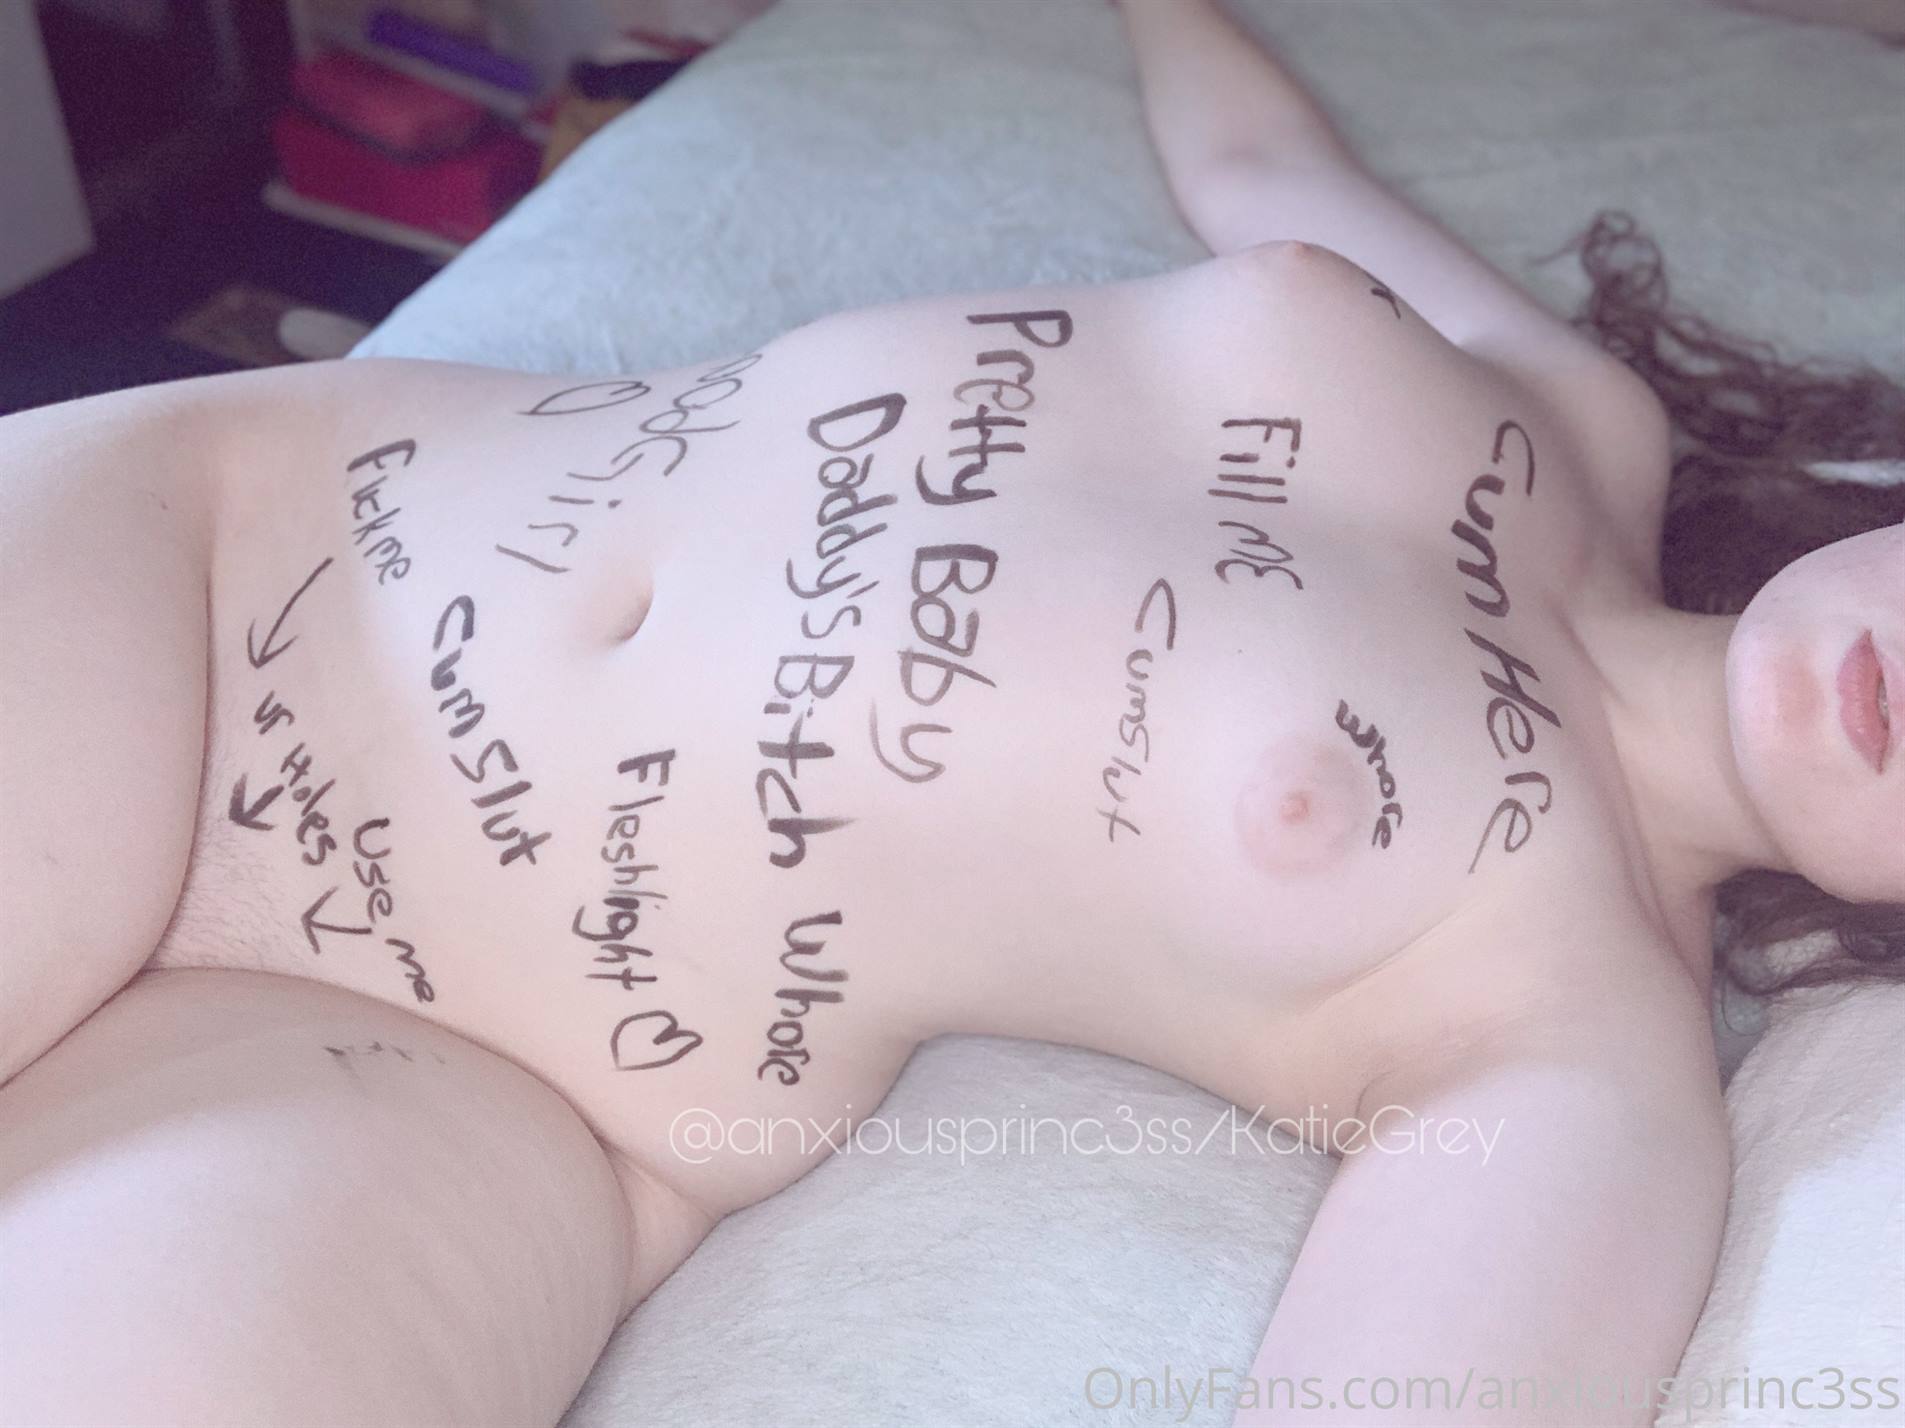 Cum Here
Whore
Fill me
Cumslut
Pretty Baby
Daddy's Bitch
Whore
Good Girl
Fleshlight
Cum Slut
Fuck me
use me
ur Holes
@anxiousprinc3ss/KatieGrey
OnlyFans.com/anxiousprinc3ss